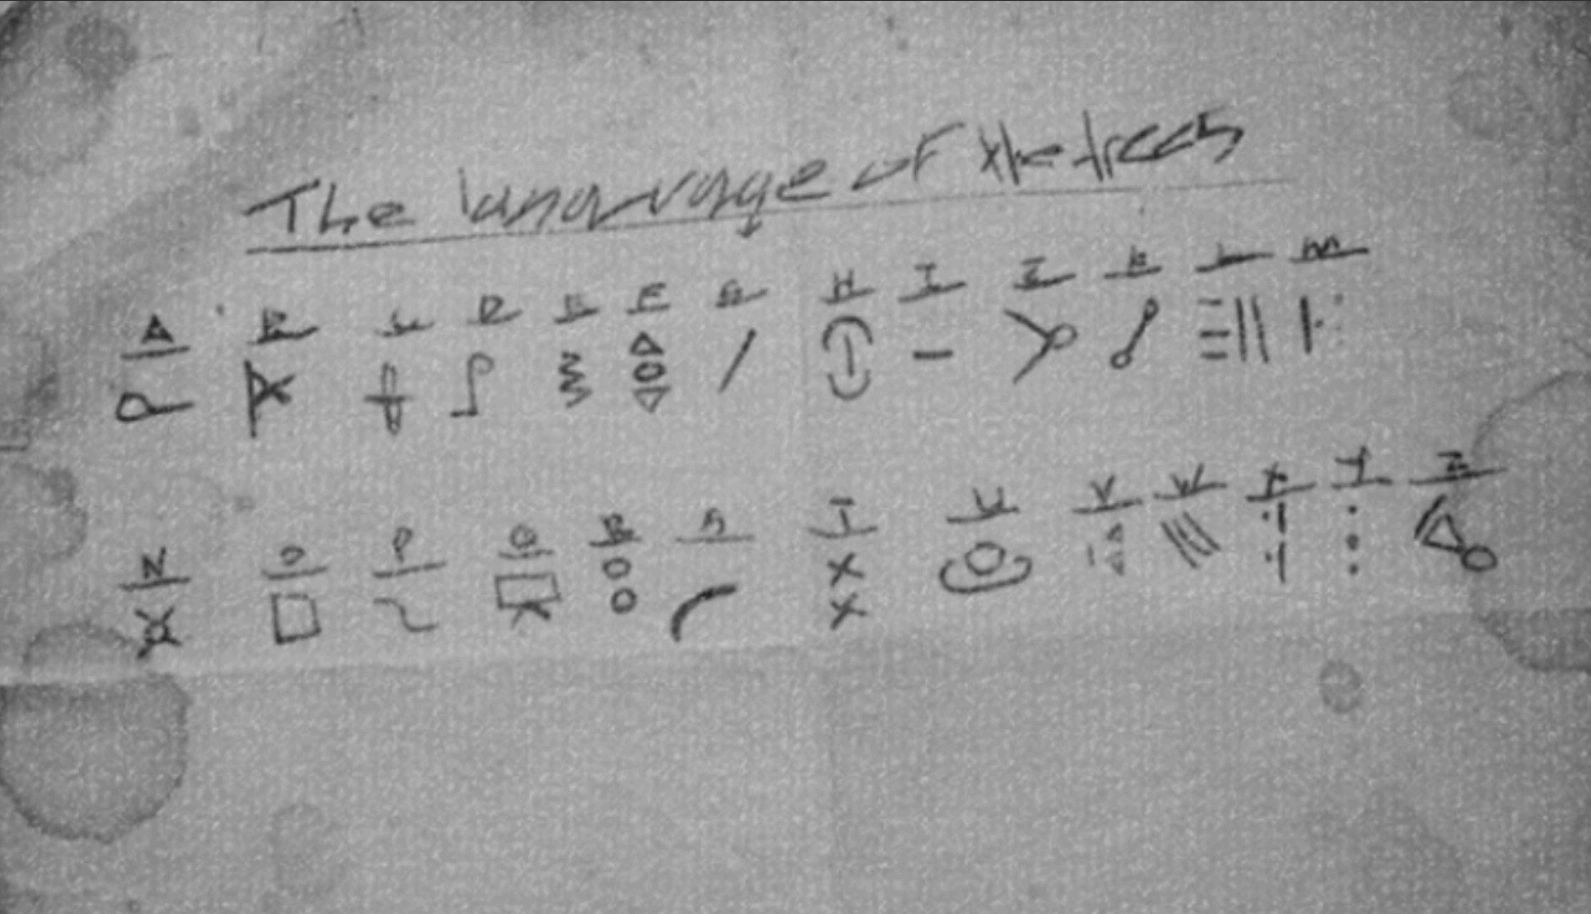 The language of the trees
A B C D E F G H I J K L M
N O P Q R S T U V W X Y Z